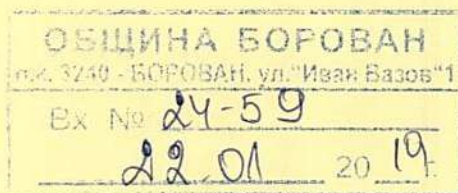 ОБЩИНА БОРОВАН
п.к. 3240 - БОРОВАН, ул."Иван Вазов"1
Вх № 24-59
22.01 2019 г.